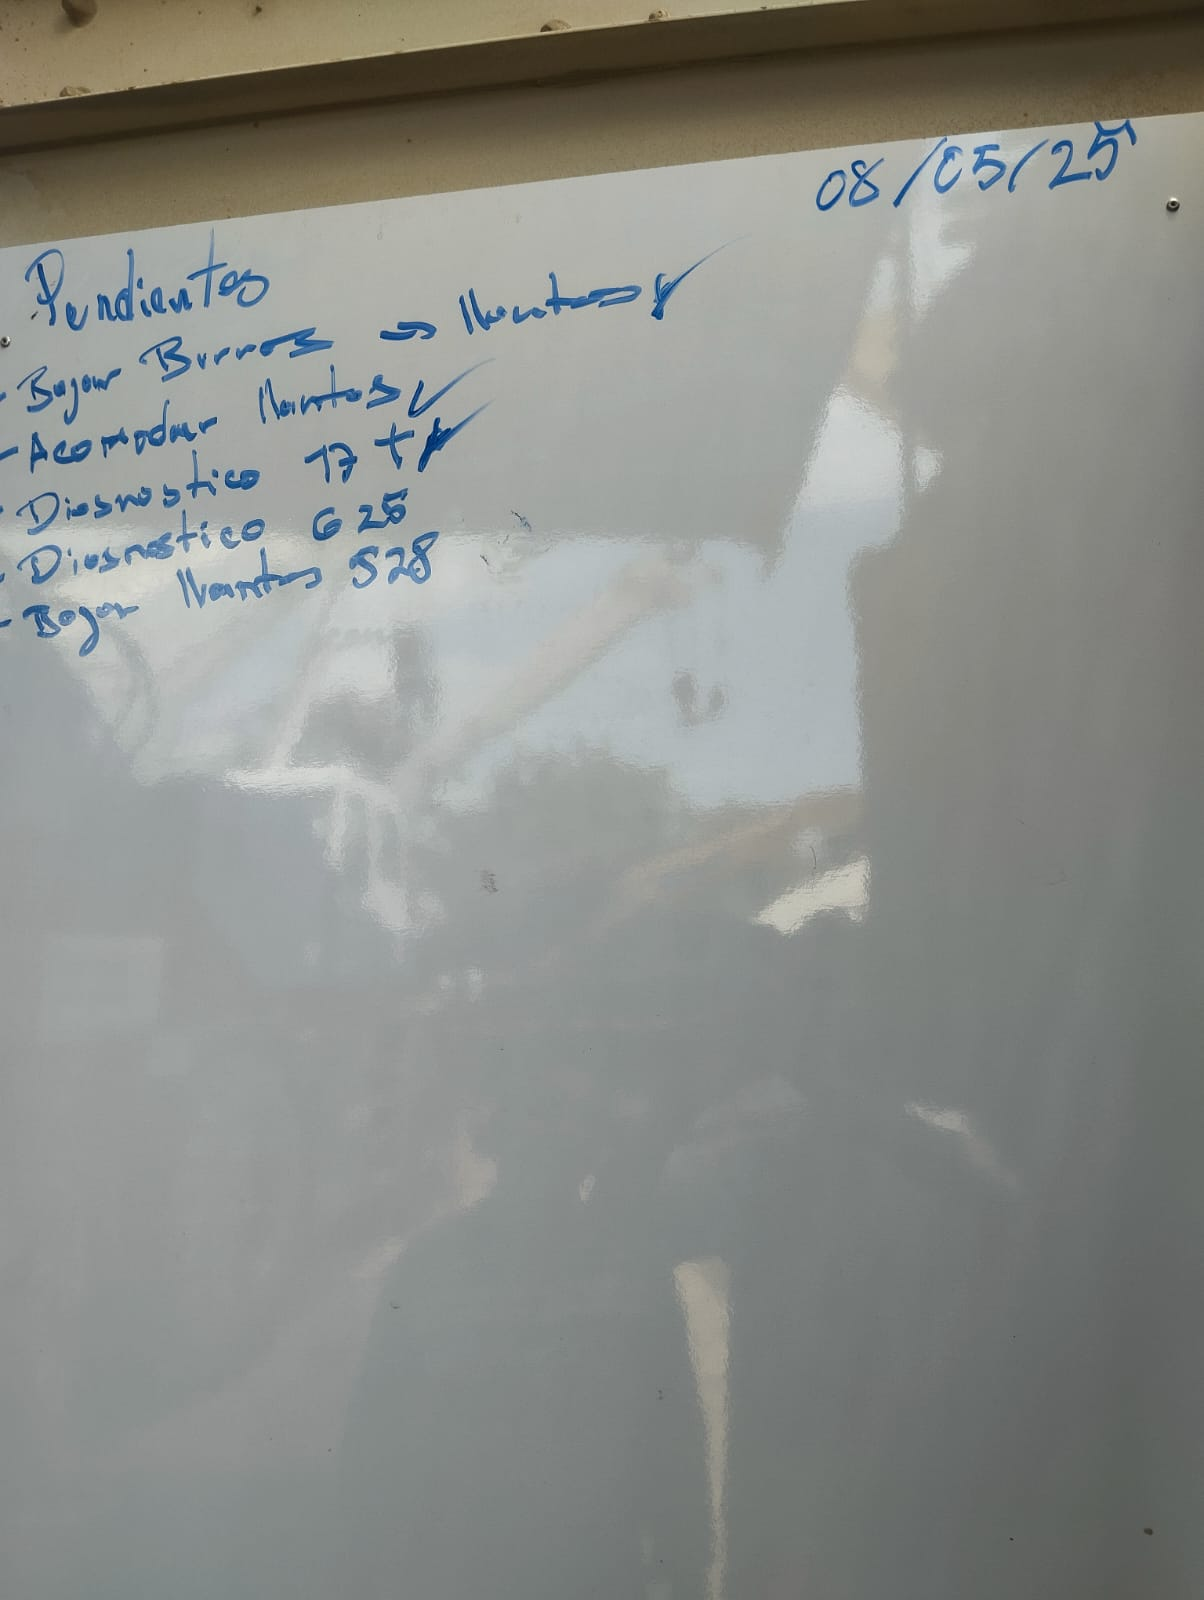 08/05/25
Pendientes
- Bajar Burros => llantas ✓
- Acomodar llantas ✓
- Diagnostico 17 T ✓
- Diagnostico G 25
- Bajar llantas 528